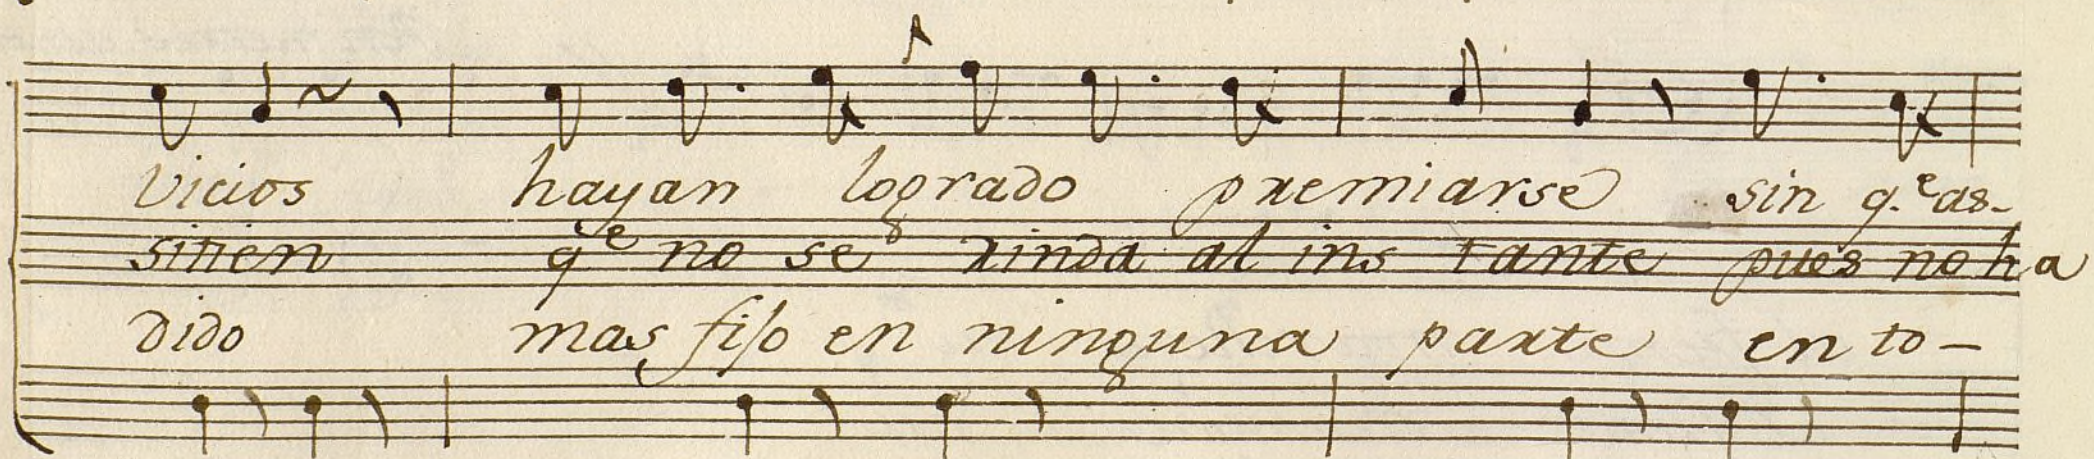 vicios hayan logrado premiarse sin q.e as-
sitien qe no se rinda al ins tante pues no ha
dido mas fijo en ninguna parte en to-